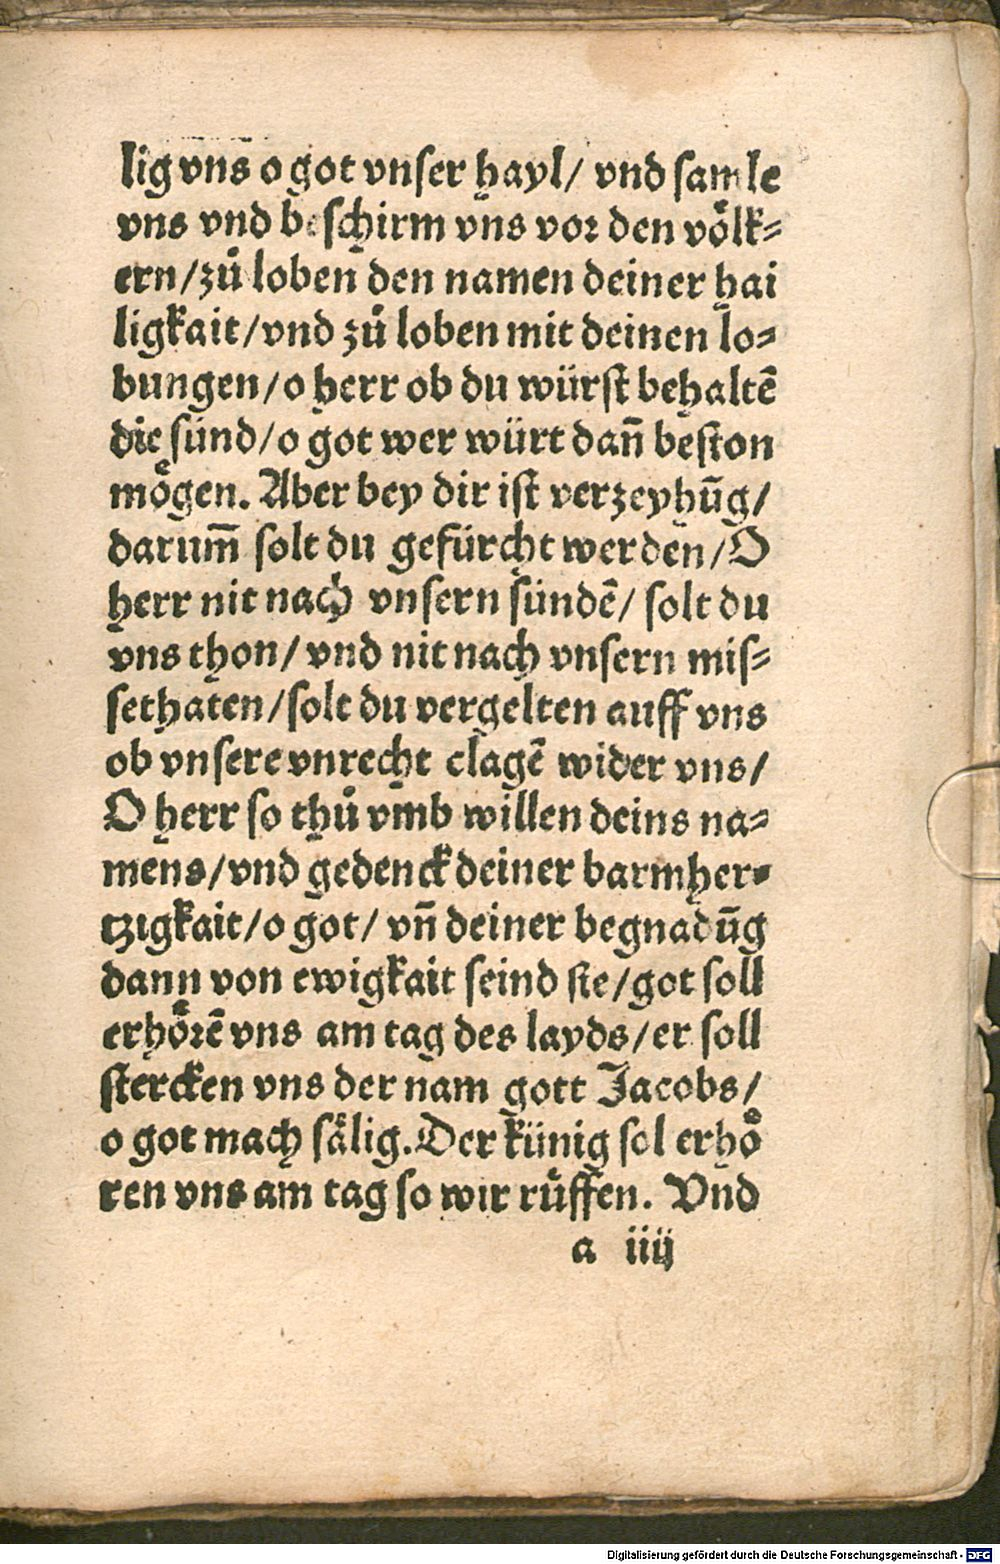 lig vns o got vnser hayl/ vnd samle
vns vnd beschirm vns vor den voͤlk⸗
ern/zuͦ loben den namen deiner hai
ligkait/vnd zuͦ loben mit deinen lo⸗
bungen/o herr ob du würst behaltē
die sünd/o got wer würt dañ beston
moͤgen. Aber bey dir ist verzeyhūg/
darum̃ solt du gefürcht werden/O
herr nit nach vnsern sündē/ solt du
vns thon/vnd nit nach vnsern mis⸗
sethaten/solt du vergelten auff vns
ob vnsere vnrecht clagē wider vns/
O herr so thuͦ vmb willen deins na⸗
mens/vnd gedenck deiner barmher⸗
tzigkait/o got/ vñ deiner begnadūg
dann von ewigkait seind sie/got soll
erhoͤrē vns am tag des layds/er soll
stercken vns der nam gott Jacobs/
o got mach saͤlig. Der künig sol erhoͤ
ren vns am tag so wir ruͤffen. Vnd
a iiij
Digitalisierung gefördert durch die Deutsche Forschungsgemeinschaft - DFG